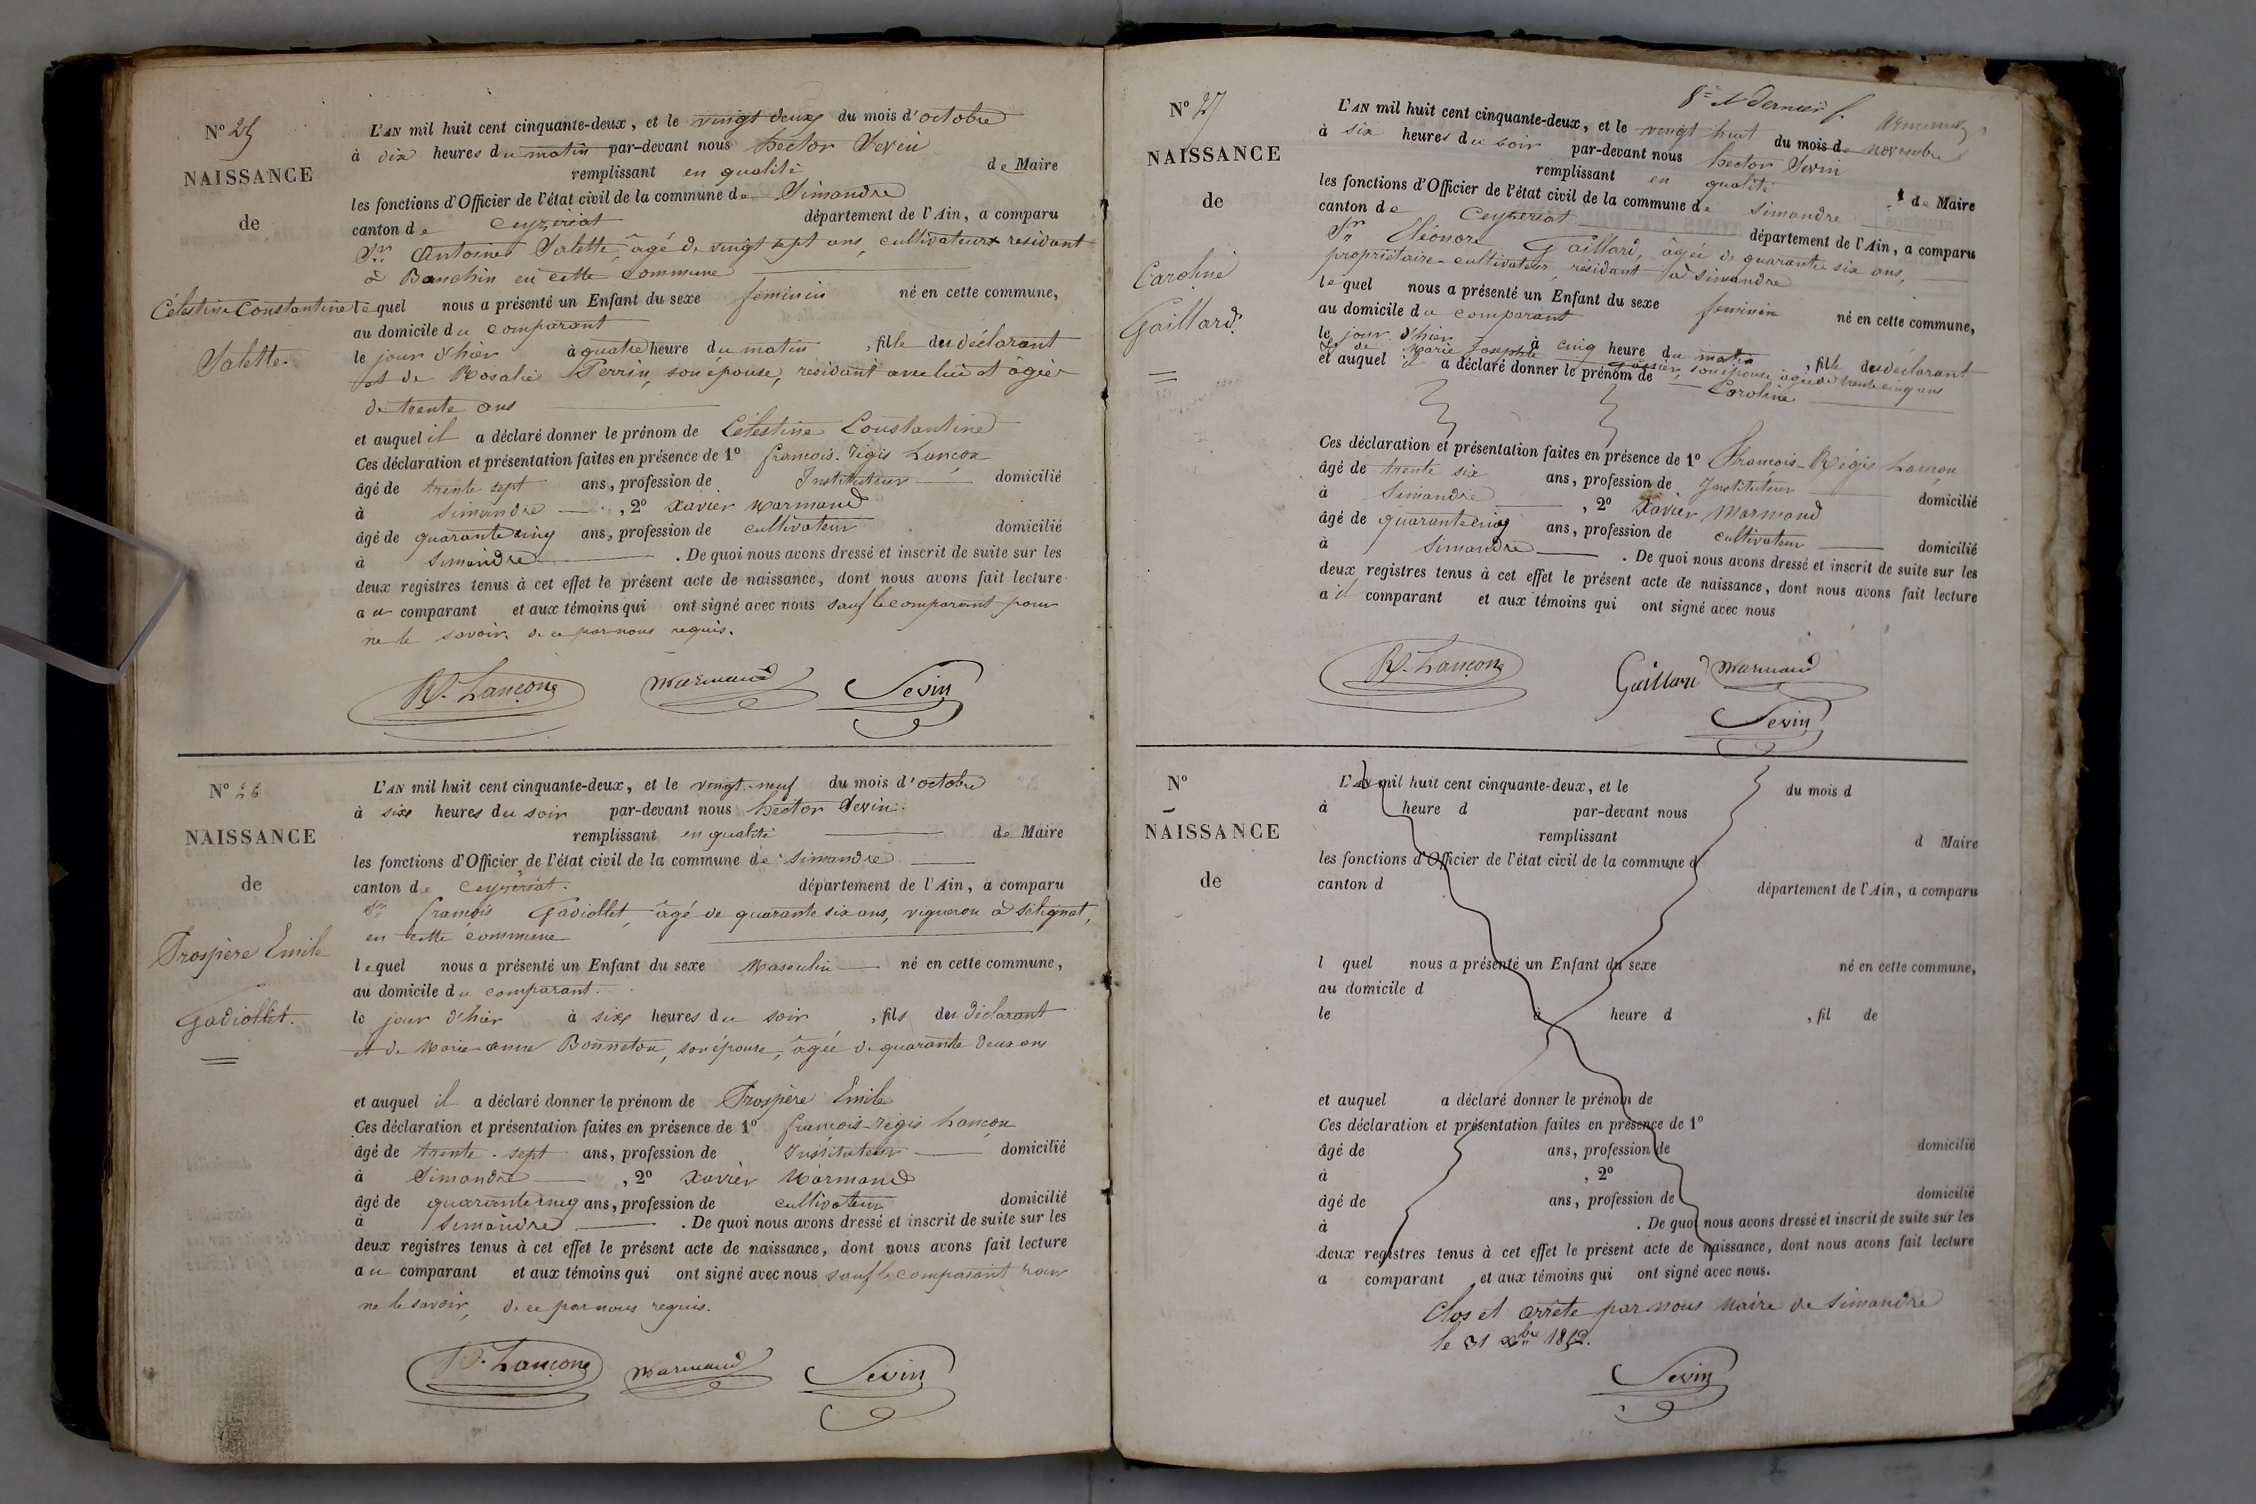 N° 25
NAISSANCE
de
Célestine Constantine
Salette.
L'AN mil huit cent cinquante-deux, et le vingt deux du mois d'octobre
à dix heures du matin par-devant nous hector Sevin
remplissant en qualité de Maire
les fonctions d'Officier de l'état civil de la commune de Simandre
canton de Ceyzériat département de l'Ain, a comparu
Sr Antoine Salette, âgé de vingt sept ans, cultivateur résidant
à Banchin en cette Commune
lequel nous a présenté un Enfant du sexe féminin né en cette commune,
au domicile du comparant
le jour d'hier à quatre heure du matin, fille du déclarant
et de Rosalie Perrin, son épouse, résidant avec lui et âgée
de trente ans
et auquel il a déclaré donner le prénom de Célestine Constantine
Ces déclaration et présentation faites en présence de 1° françois-régis Lançon
âgé de trente sept ans, profession de Instituteur domicilié
à Simandre, 2° Xavier Marmand
âgé de quarante cinq ans, profession de cultivateur domicilié
à Simandre. De quoi nous avons dressé et inscrit de suite sur les
deux registres tenus à cet effet le présent acte de naissance, dont nous avons fait lecture
au comparant et aux témoins qui ont signé avec nous sauf le comparant pour
ne le savoir, de ce par nous requis.
R. Lançon Marmand Sevin
N° 26
NAISSANCE
de
Prospère Emile
Gadiollet.
L'AN mil huit cent cinquante-deux, et le vingt-neuf du mois d'octobre
à six heures du soir par-devant nous hector Sevin
remplissant en qualité de Maire
les fonctions d'Officier de l'état civil de la commune de Simandre
canton de Ceyzériat. département de l'Ain, a comparu
Sr françois Gadiollet, âgé de quarante six ans, vigneron à Sélignat,
en cette commune
lequel nous a présenté un Enfant du sexe Masculin né en cette commune,
au domicile du comparant.
le jour d'hier à six heures du soir, fils du déclarant
et de Marie-anne Bonneton, son épouse, âgée de quarante deux ans
et auquel il a déclaré donner le prénom de Prospère Emile
Ces déclaration et présentation faites en présence de 1° françois-régis Lançon
âgé de trente-sept ans, profession de Instituteur domicilié
à Simandre, 2° Xavier Marmand
âgé de quarante cinq ans, profession de cultivateur domicilié
à Simandre. De quoi nous avons dressé et inscrit de suite sur les
deux registres tenus à cet effet le présent acte de naissance, dont nous avons fait lecture
au comparant et aux témoins qui ont signé avec nous sauf le comparant pour
ne le savoir, de ce par nous requis.
R. Lançon Marmand Sevin
8e et dernier f.
N° 27
NAISSANCE
de
Caroline
Gaillard.
L'AN mil huit cent cinquante-deux, et le vingt huit du mois de novembre
à six heures du soir par-devant nous hector Sevin
remplissant en qualité de Maire
les fonctions d'Officier de l'état civil de la commune de Simandre
canton de Ceyzériat département de l'Ain, a comparu
Sr Eléonore Gaillard, âgée de quarante six ans,
propriétaire-cultivateur, résidant à Simandre
lequel nous a présenté un Enfant du sexe féminin né en cette commune,
au domicile du comparant
le jour d'hier à cinq heure du matin, fille du déclarant
et de Marie Josephte son épouse âgée de trente cinq ans
et auquel il a déclaré donner le prénom de Caroline
Ces déclaration et présentation faites en présence de 1° françois-Régis Lançon
âgé de trente six ans, profession de Instituteur domicilié
à Simandre, 2° Xavier Marmand
âgé de quarante cinq ans, profession de cultivateur domicilié
à Simandre. De quoi nous avons dressé et inscrit de suite sur les
deux registres tenus à cet effet le présent acte de naissance, dont nous avons fait lecture
a comparant et aux témoins qui ont signé avec nous
R. Lançon Gaillard Marmand
Sevin
N°
NAISSANCE
de
L'AN mil huit cent cinquante-deux, et le du mois d
à heure d par-devant nous
remplissant d Maire
les fonctions d'Officier de l'état civil de la commune d
canton d département de l'Ain, a comparu
l quel nous a présenté un Enfant du sexe né en cette commune,
au domicile d
le à heure d , fil de
et auquel a déclaré donner le prénom de
Ces déclaration et présentation faites en présence de 1°
âgé de ans, profession de domicilié
à , 2°
âgé de ans, profession de domicilié
à . De quoi nous avons dressé et inscrit de suite sur les
deux registres tenus à cet effet le présent acte de naissance, dont nous avons fait lecture
a comparant et aux témoins qui ont signé avec nous.
Clos et arrêté par nous Maire de Simandre
le 31 xbre 1852.
Sevin